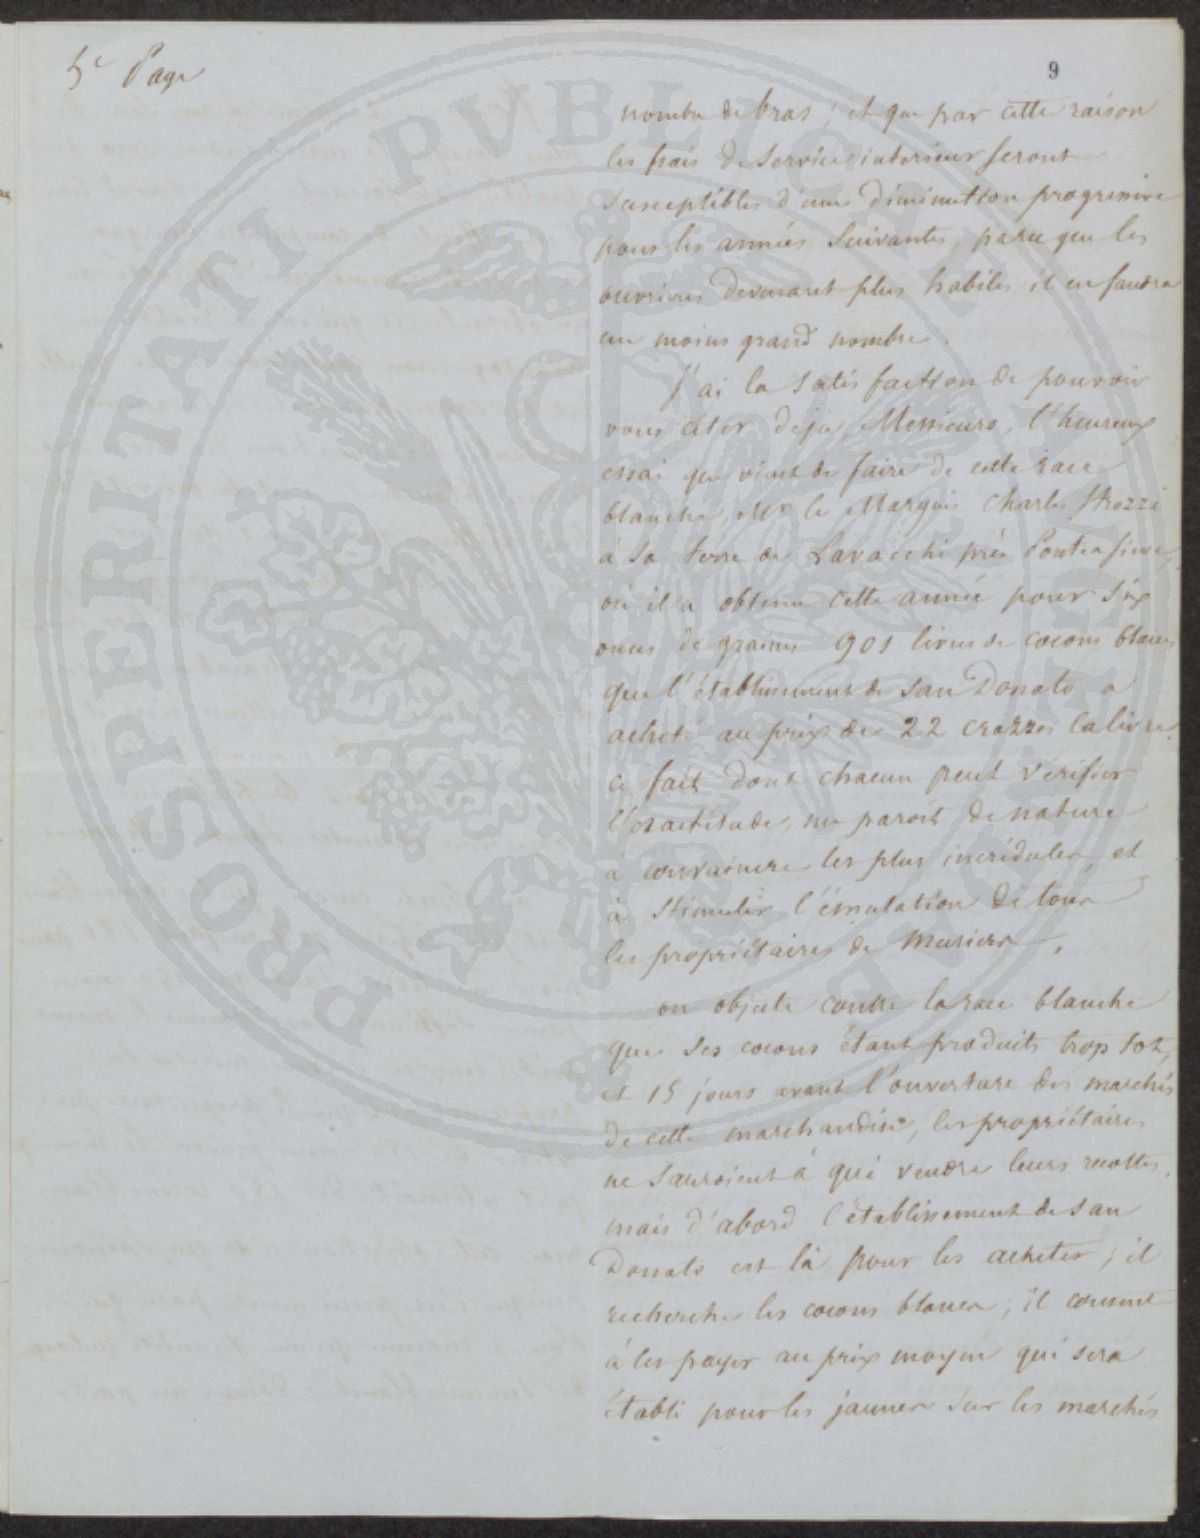 5e Page
9
nombre de bras ; et que par cette raison
les frais de Service interieur seront
Susceptibles d'une Diminution progressive
pour les années Suivantes, parce que les
ouvrieres devenant plus habiles il en faudra
un moins grand nombre.
J'ai la Satisfaction de pouvoir
vous citer deja, Messieurs, l'heureux
essai que vient de faire de cette race
blanche, Mr le Marquis Charles Strozzi
à Sa terre de Lavacchi près Pontassieve,
où il a obtenu cette année pour Six
onces de graines 901 livres de cocons blancs
que l'établissement de San Donato a
acheté au prix de 22 crazzes la livre.
ce fait dont chacun peut verifier
l'exactitude, me paroit de nature
à convaincre les plus incrédules, et
à Stimuler l'émulation de tous
les propriétaires de Muriers.
on objecte contre la race blanche
que Ses cocons étant produits trop tot,
et 15 jours avant l'ouverture des marchés
de cette marchandise, les propriétaires
ne Sauroient à qui vendre leurs recoltes.
mais d'abord l'établissement de San
Donato est là pour les acheter ; il
recherche les cocons blancs ; il consent
à les payer au prix moyen qui sera
établi pour les jaunes Sur les marchés
PROSPERITATI PVBLICAE AVGENDAE